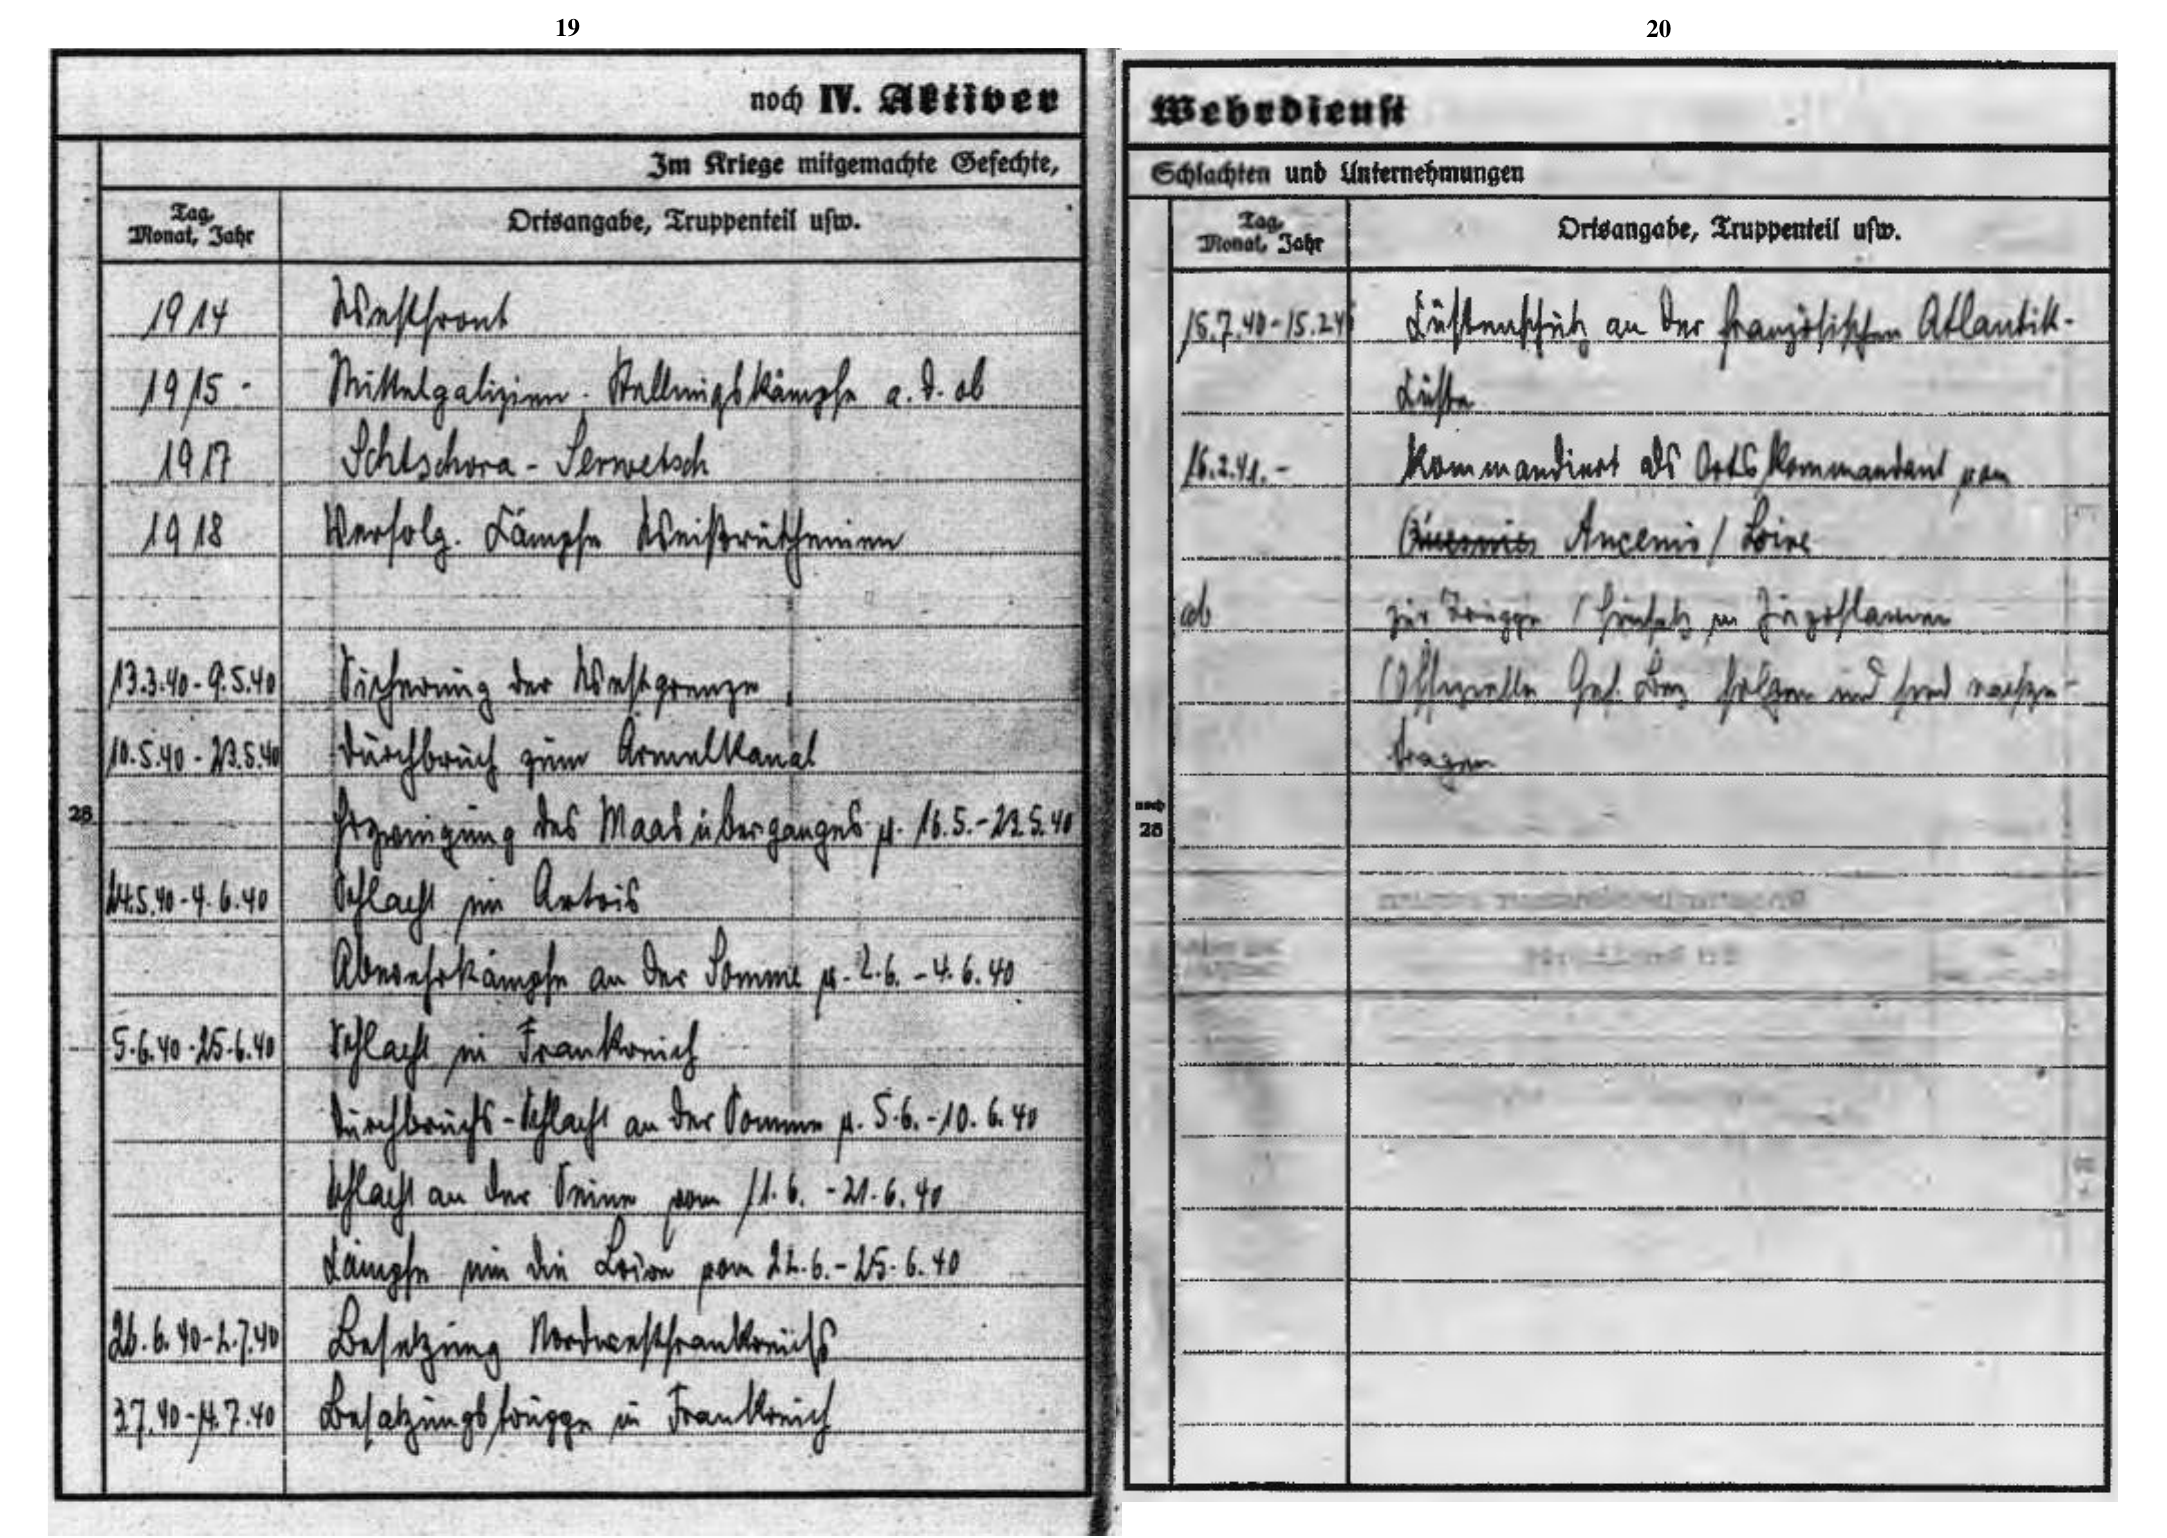 19
noch IV. Aktiver
Im Kriege mitgemachte Gefechte,
Tag, Monat, Jahr
Ortsangabe, Truppenteil usw.
1914 Westfront
1915 - Mittelgalizien. Stellungskämpfe a. d. ob
1917 Schtschara - Serwetsch
1918 Verfolg. Kämpfe Weißruthenien
13.3.40 - 9.5.40 Sicherung der Westgrenze
10.5.40 - 23.5.40 Durchbruch zum Ärmelkanal
28
Erzwingung des Maasüberganges v. 16.5. - 23.5.40
24.5.40 - 4.6.40 Schlacht im Artois
Abwehrkämpfe an der Somme v. 2.6. - 4.6.40
5.6.40 - 25.6.40 Schlacht in Frankreich
Durchbruchs-Schlacht an der Somme v. 5.6. - 10.6.40
Schlacht an der Seine vom 11.6. - 21.6.40
Kämpfe um die Loire vom 22.6. - 25.6.40
26.6.40 - 2.7.40 Besetzung Nordwestfrankreichs
3.7.40 - 14.7.40 Besatzungstruppe in Frankreich
20
Wehrdienst
Schlachten und Unternehmungen
Tag, Monat, Jahr
Ortsangabe, Truppenteil usw.
15.7.40 - 15.2.41 Küstenschutz an der französischen Atlantik-
Küste
16.2.41. - Kommandiert als Ortskommandant von
Ancenis / Loire
ab zur Truppe / Einsatz in Jugoslawien
(Offizielle Gef. Bez folgen und sind nachzu-
tragen
noch
28